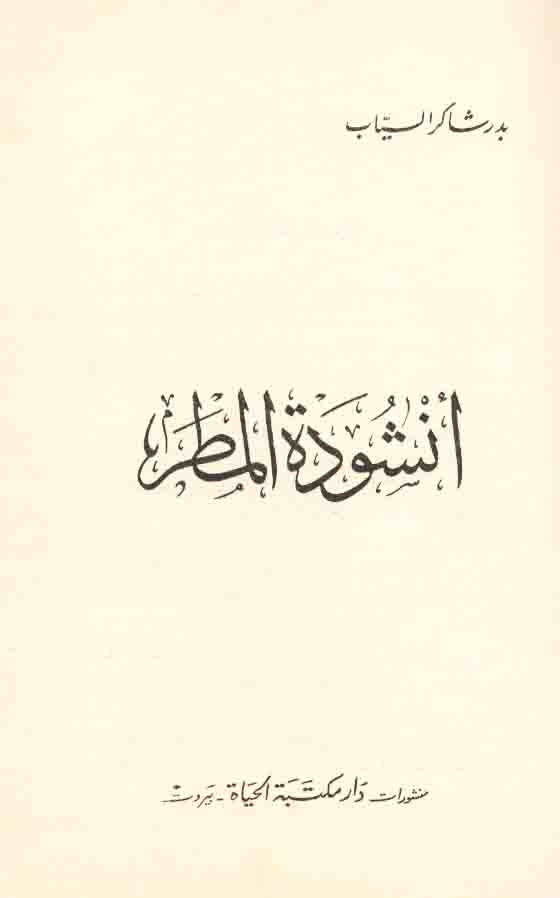 بدر شاكر السيّاب
أنْشُودَة المَطَر
منشورات دَار مكتَبَة الحَيَاة - بَيروت